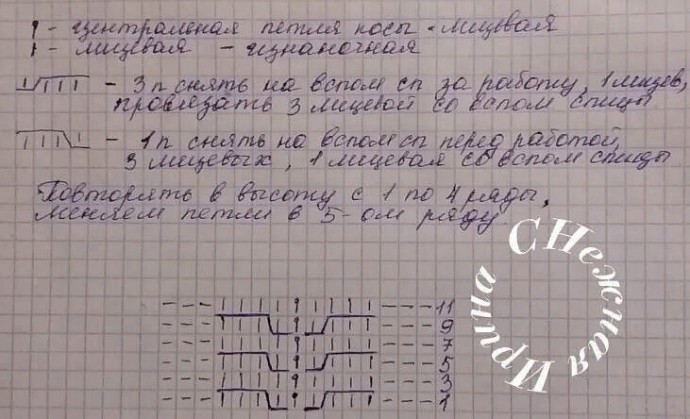 - центральная петля косы - лицевая
| - лицевая - изнаночная
- 3 п снять на вспом сп за работу, 1 лицев,
провязать 3 лицевой со вспом спицы
- 1 п снять на вспом сп перед работой,
3 лицевых, 1 лицевая со вспом спицы
Повторять в высоту с 1 по 4 ряды,
меняем петли в 5-ом ряду
11
9
7
5
3
1
Ирина СНежная